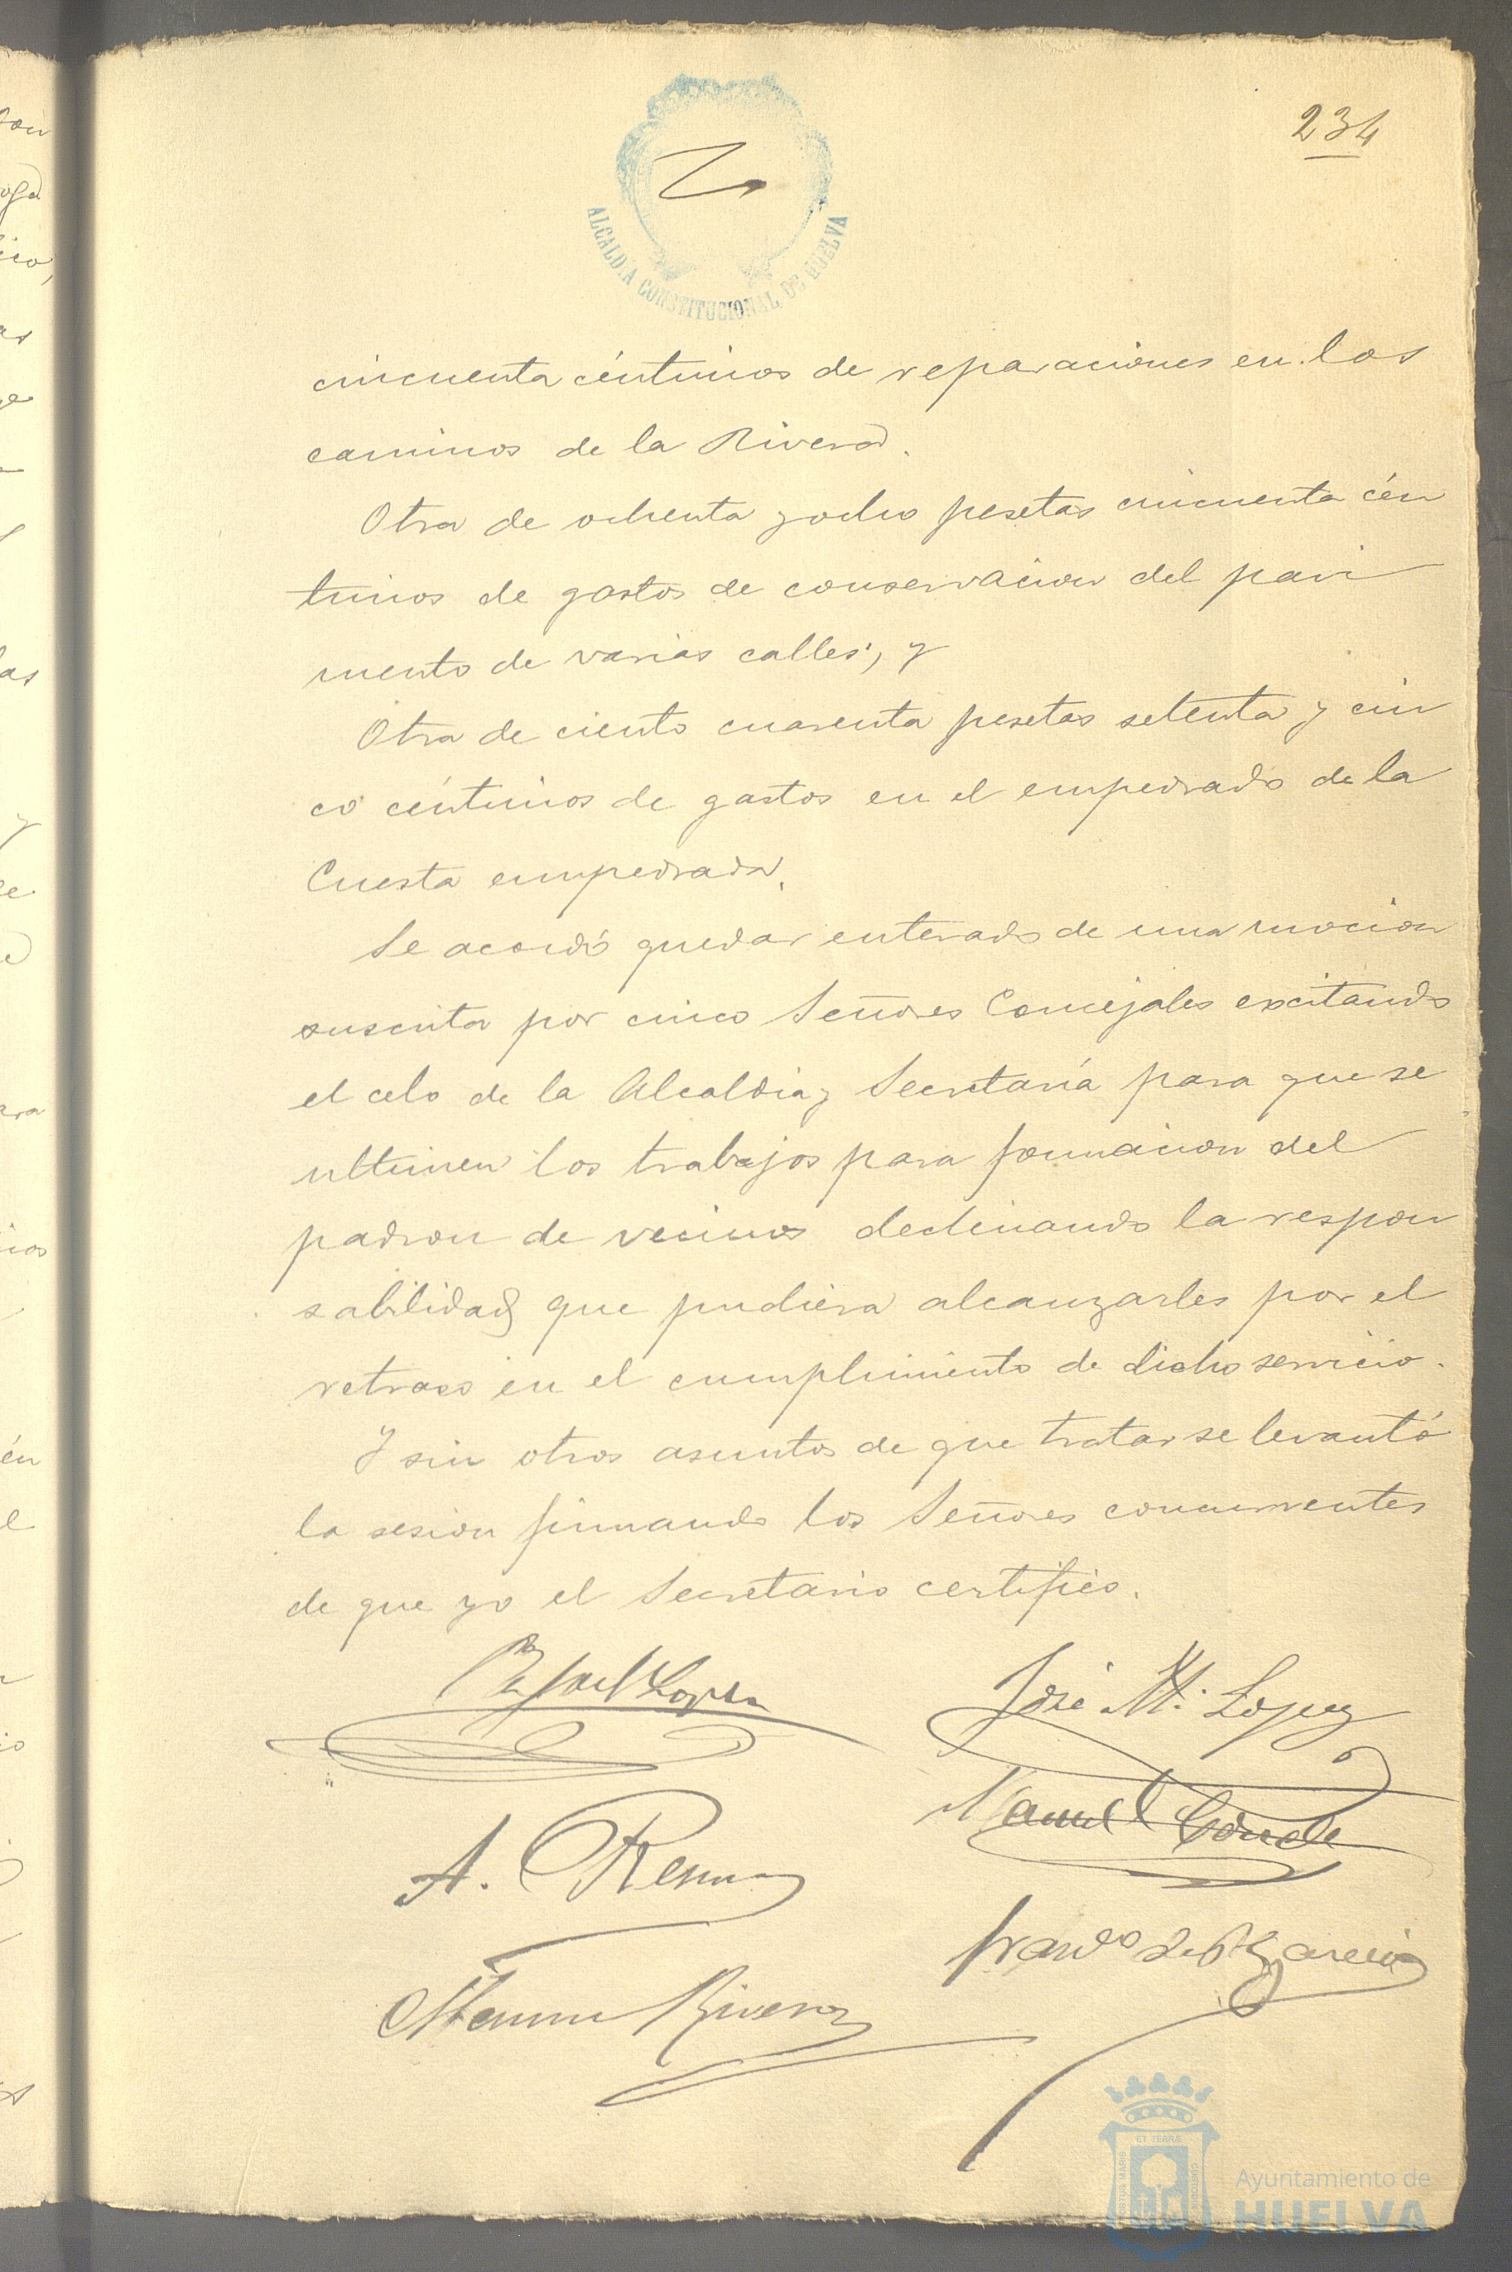 234
ALCALDIA CONSTITUCIONAL DE HUELVA
cincuenta céntimos de reparaciones en los
caminos de la Rivera.
Otra de ochenta y ocho pesetas cincuenta cén
timos de gastos de conservacion del pavi
mento de varias calles; y
Otra de ciento cuarenta pesetas setenta y cin
co céntimos de gastos en el empedrado de la
Cuesta empedrada.
Se acordó quedar enterado de una mocion
suscrita por cinco Señores Concejales excitando
el celo de la Alcaldia y Secretaría para que se
ultimen los trabajos para formacion del
padron de vecinos declinando la respon
sabilidad que pudiera alcanzarles por el
retraso en el cumplimiento de dicho servicio.
Y sin otros asuntos de que tratar se levantó
la sesion firmando los Señores concurrentes
de que yo el Secretario certifico.
Rafael Lopez
José Mª Lopez
Manuel Conde
A.
Franco de P. Garcia
Rivera
ET TERRÆ
PORTUS MARIS
CUSTODIA
Ayuntamiento de
HUELVA